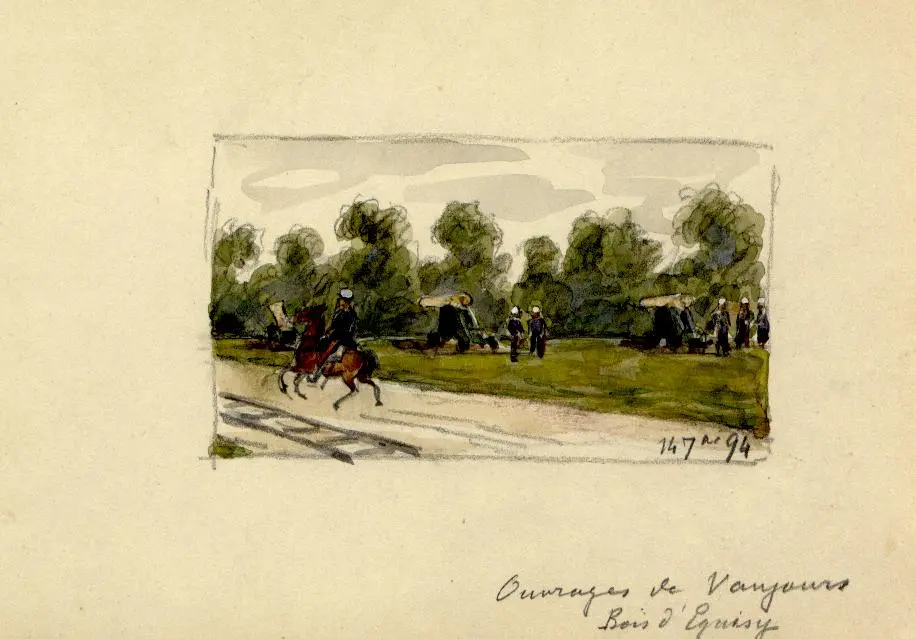 14 7re 94
Ouvrages de Vaujours
Bois d'Eguisy